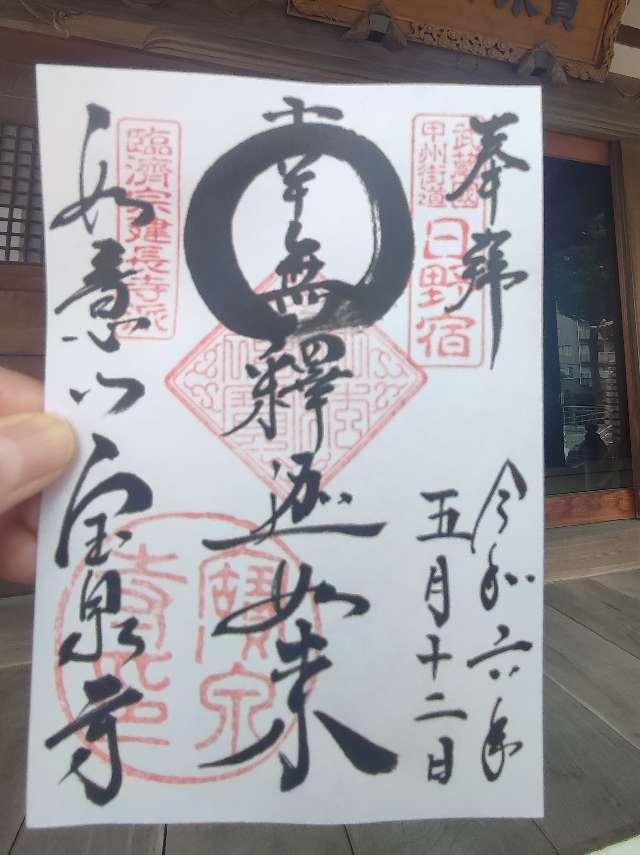 奉拝
武蔵国
甲州街道
日野宿
令和六年
五月十二日
南無釋迦如来
臨済宗建長寺派
如意山宝泉寺
寳泉
寺印